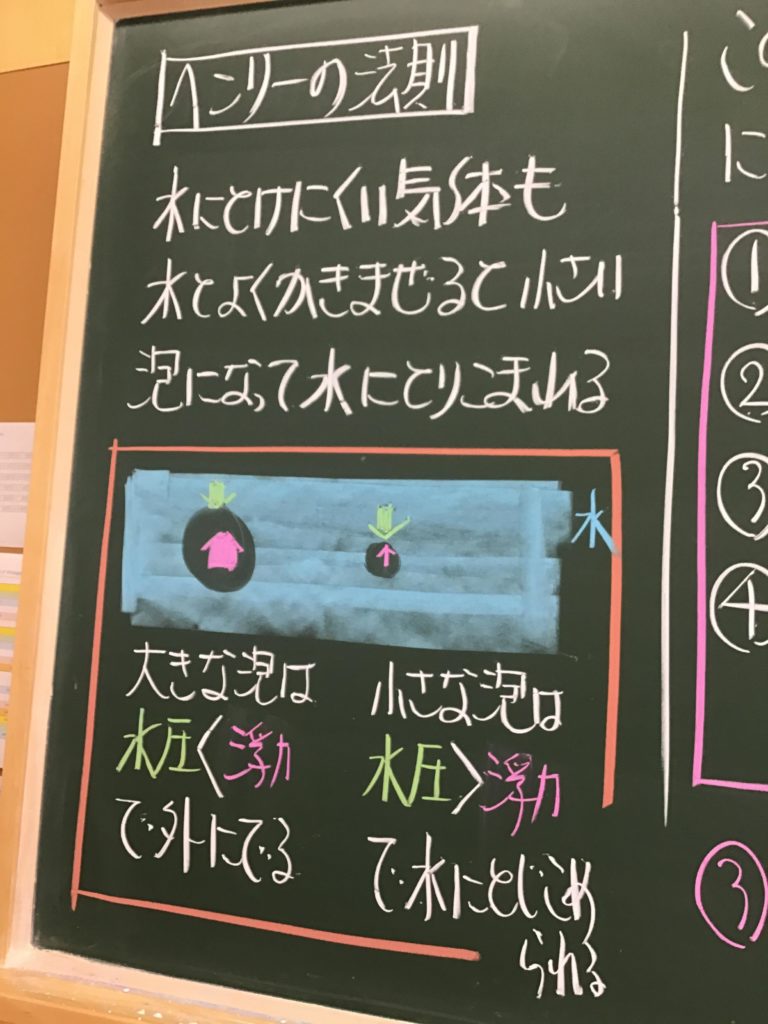 ヘンリーの法則
水にとけにくい気体も
水とよくかきまぜると小さい
泡になって水にとりこまれる
水
大きな泡は
水圧<浮力
で外にでる
小さな泡は
水圧>浮力
で水にとじこめ
られる
に
①
②
③
④
③